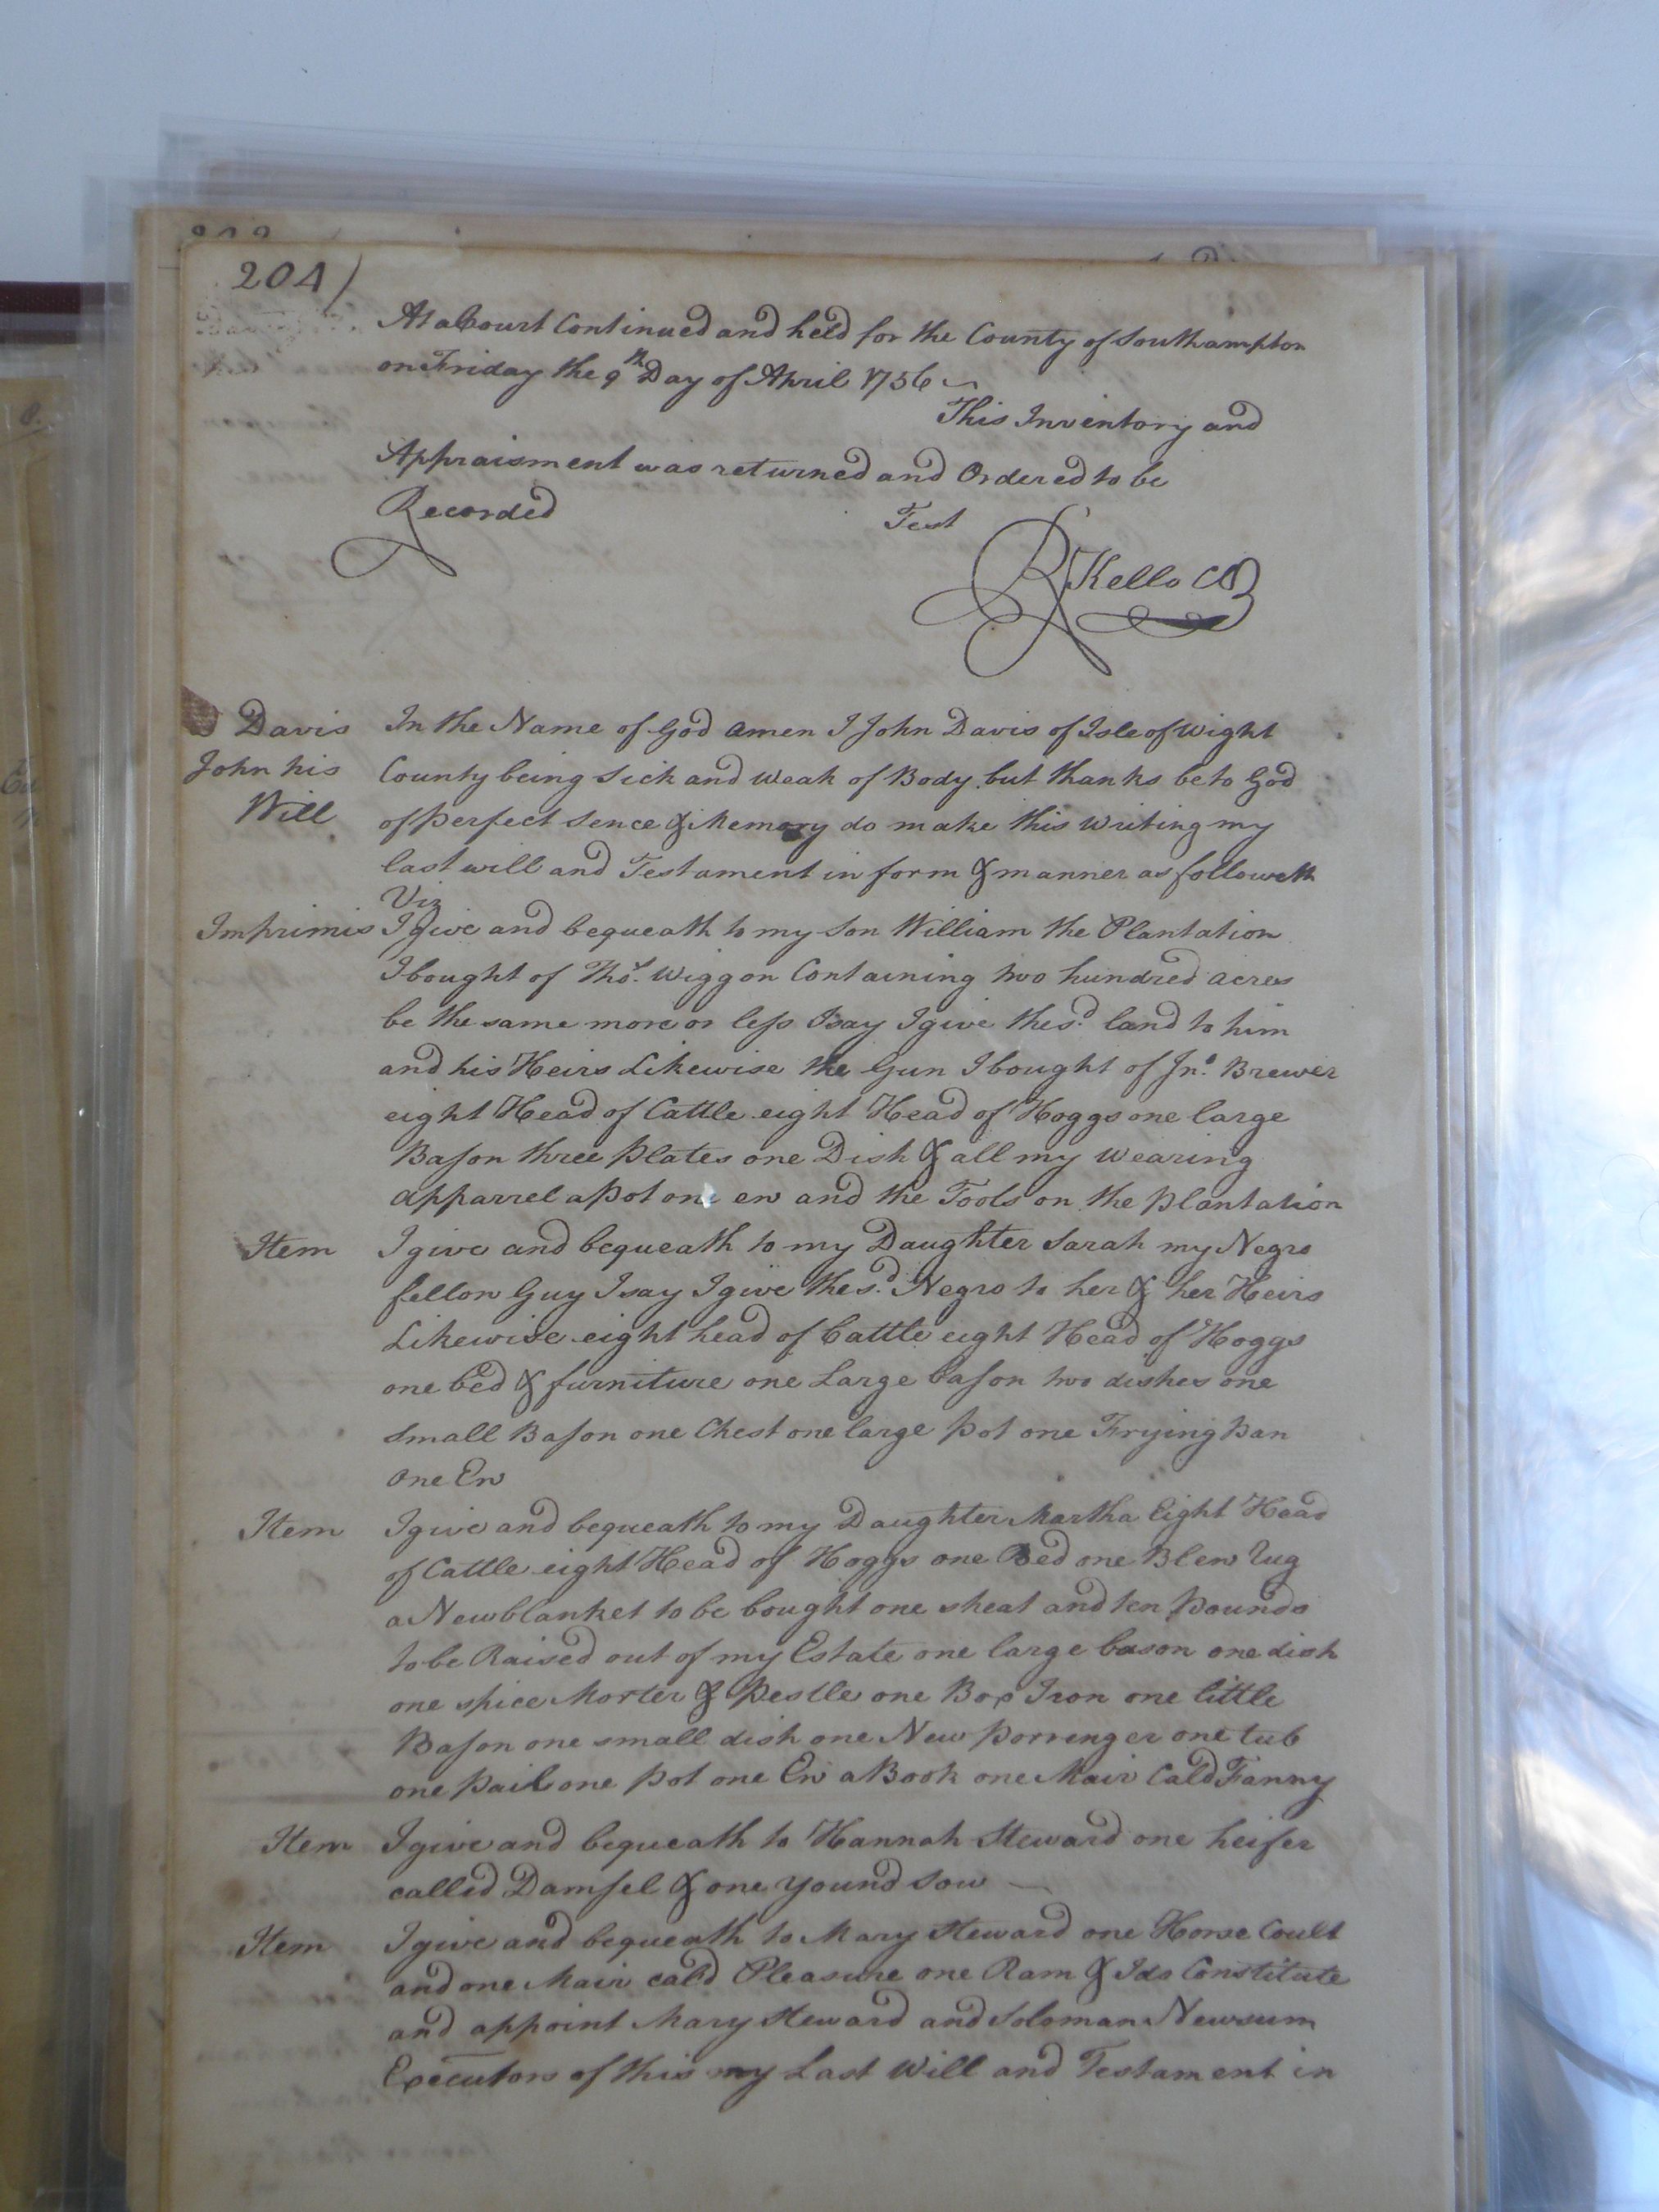 204)
At a Court Continued and held for the County of Southampton
on Friday the 9th Day of April 1756
This Inventory and
Appraisment was returned and Ordered to be
Recorded Test
R Kello CC
Davis In the Name of God Amen I John Davis of Isle of Wight
John his County being Sick and Weak of Body but thanks be to God
Will of Perfect Sence & Memory do make this Writing my
last will and Testament in form & manner as followeth
Viz
Imprimis I Give and bequeath to my Son William the Plantation
I bought of Thos. Wiggon Containing two hundred acres
be the same more or less I say I give the sd. land to him
and his Heirs Likewise the Gun I bought of Jno. Brewer
eight Head of Cattle eight Head of Hoggs one large
Bason three Plates one Dish & all my Wearing
Apparrel a Pot one ew and the Tools on the Plantation
Item I give and bequeath to my Daughter Sarah my Negro
fellow Guy I say I give the sd. Negro to her & her Heirs
Likewise eight head of Cattle eight Head of Hoggs
one bed & furniture one Large bason two dishes one
Small Bason one Chest one large Pot one Frying Pan
One Ew
Item I give and bequeath to my Daughter Martha Eight Head
of Cattle eight Head of Hoggs one Bed one Blew Rug
a New blanket to be bought one sheat and ten Pounds
to be Raised out of my Estate one large bason one dish
one spice Morter & Pestle one Box Iron one little
Bason one small dish one New Porrenger one tub
one Pail one Pot one Ew a Book one Mair Cald Fanny
Item I give and bequeath to Hannah Steward one heifer
called Damsel & one Yound Sow
Item I give and bequeath to Mary Steward one Horse Coult
and one Mair cald Pleasure one Ram & I do Constitute
and appoint Mary Steward and Soloman Newsum
Executors of this my Last Will and Testament in